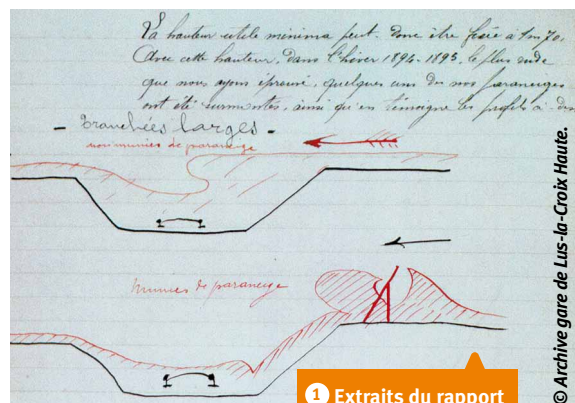 La hauteur utile minima peut donc être fixée à 1m70.
Avec cette hauteur, dans l'hiver 1894-1895, le plus rude
que nous ayons éprouvé, quelques uns de nos paraneiges
ont été surmontés, ainsi qu'en témoigne les profils ci-des
- Tranchées larges -
non munies de paraneige
munies de paraneige
1 Extraits du rapport
© Archive gare de Lus-la-Croix Haute.